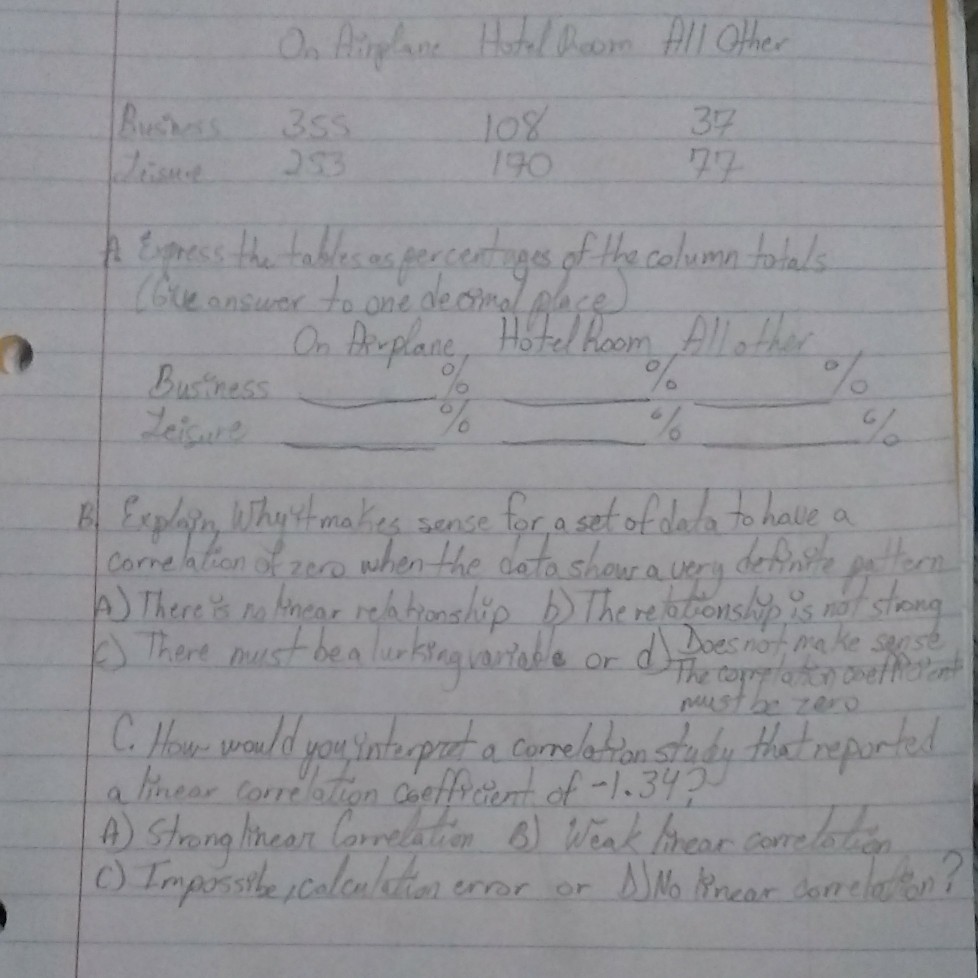 On Airplane Hotel Room All Other
Business 355 108 37
Leisure 253 170 77
A Express the tables as percentages of the column totals
(Give answer to one decimal place)
On Airplane, Hotel Room, All other
Business ______% ______% ______%
Leisure ______% ______% ______%
B. Explain, Why it makes sense for a set of data to have a
correlation of zero when the data show a very definite pattern
A) There is no linear relationship b) The relationship is not strong
c) There must be a lurking variable or d) Does not make sense
The correlation coefficient
must be zero
C. How would you interpret a correlation study that reported
a linear correlation coefficient of -1.34?
A) Strong linear Correlation B) Weak linear correlation
C) Impossibe, calculation error or D) No linear correlation?